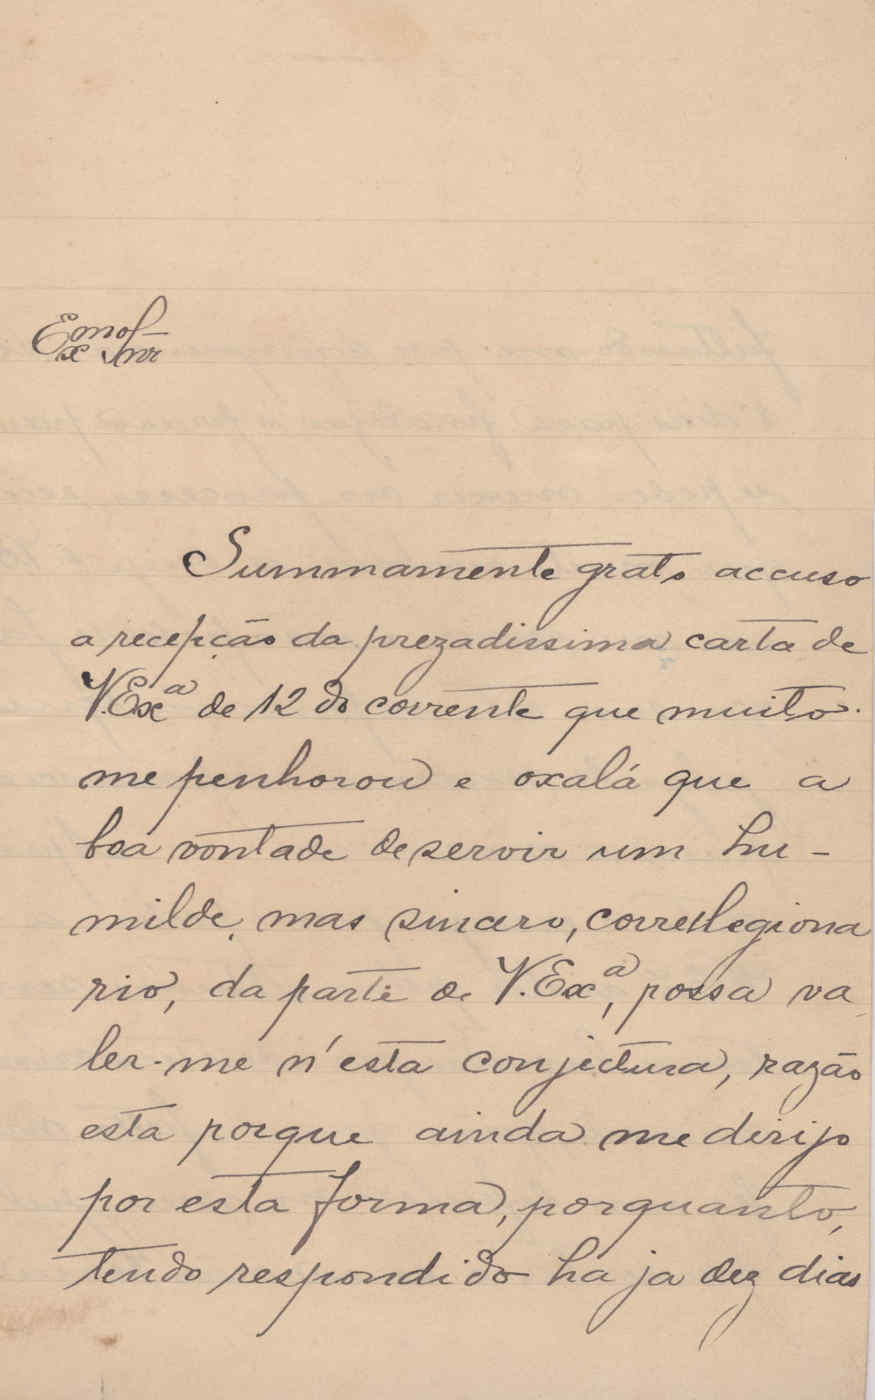 Exmo Snr
Summamente grato accuso
a recepção da prezadissima carta de
V. Exª de 12 do corrente que muito
me penhorou e oxalá que a
boa vontade de servir um hu-
milde, mas sincero, correlegiona
rio, da parte de V. Exª, possa va
ler-me n'esta conjectura, razão
esta porque ainda me dirijo
por esta forma, porquanto,
tendo respondido ha ja dez dias